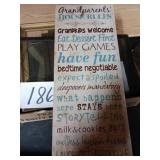 Grandparents
HOUSE RULES
Grandkids welcome
Eat Dessert First
PLAY GAMES
have fun
bedtime negotiable
expect spoiling
sleepovers mandatory
what happens
here STAYS here
STORYTELLING
milk & cookies
186